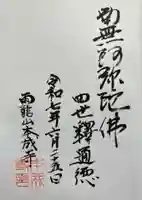 南無阿弥陀佛
四世釋通徳
令和七年六月二五日
雨龍山本成寺